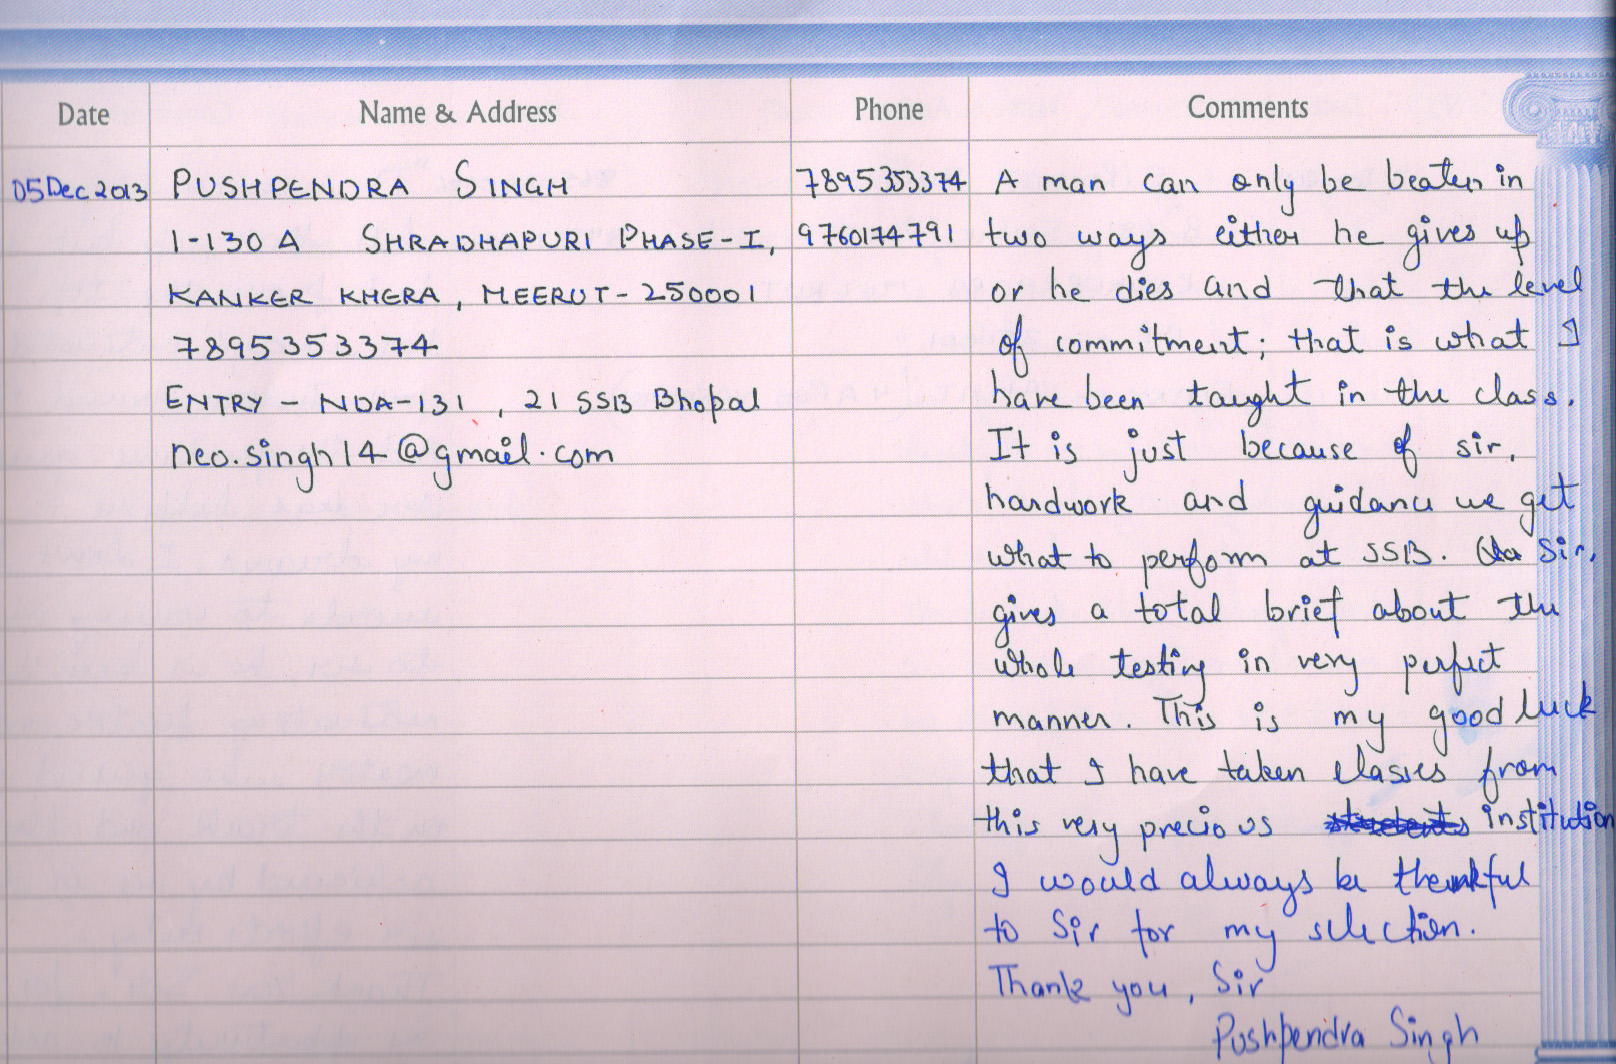 Date Name & Address Phone Comments
05 Dec 2013 PUSHPENDRA SINGH 7895353374 A man can only be beaten in
1-130 A SHRADHAPURI PHASE-I, 9760174791 two ways either he gives up
KANKER KHERA, MEERUT-250001 or he dies and that the level
7895353374 of commitment; that is what I
ENTRY - NDA-131, 21 SSB Bhopal have been taught in the class.
neo.singh14@gmail.com It is just because of sir,
hardwork and guidance we get
what to perform at SSB. Sir,
gives a total brief about the
whole testing in very perfect
manner. This is my good luck
that I have taken classes from
this very precious students institution
I would always be thankful
to Sir for my selection.
Thank you, Sir
Pushpendra Singh